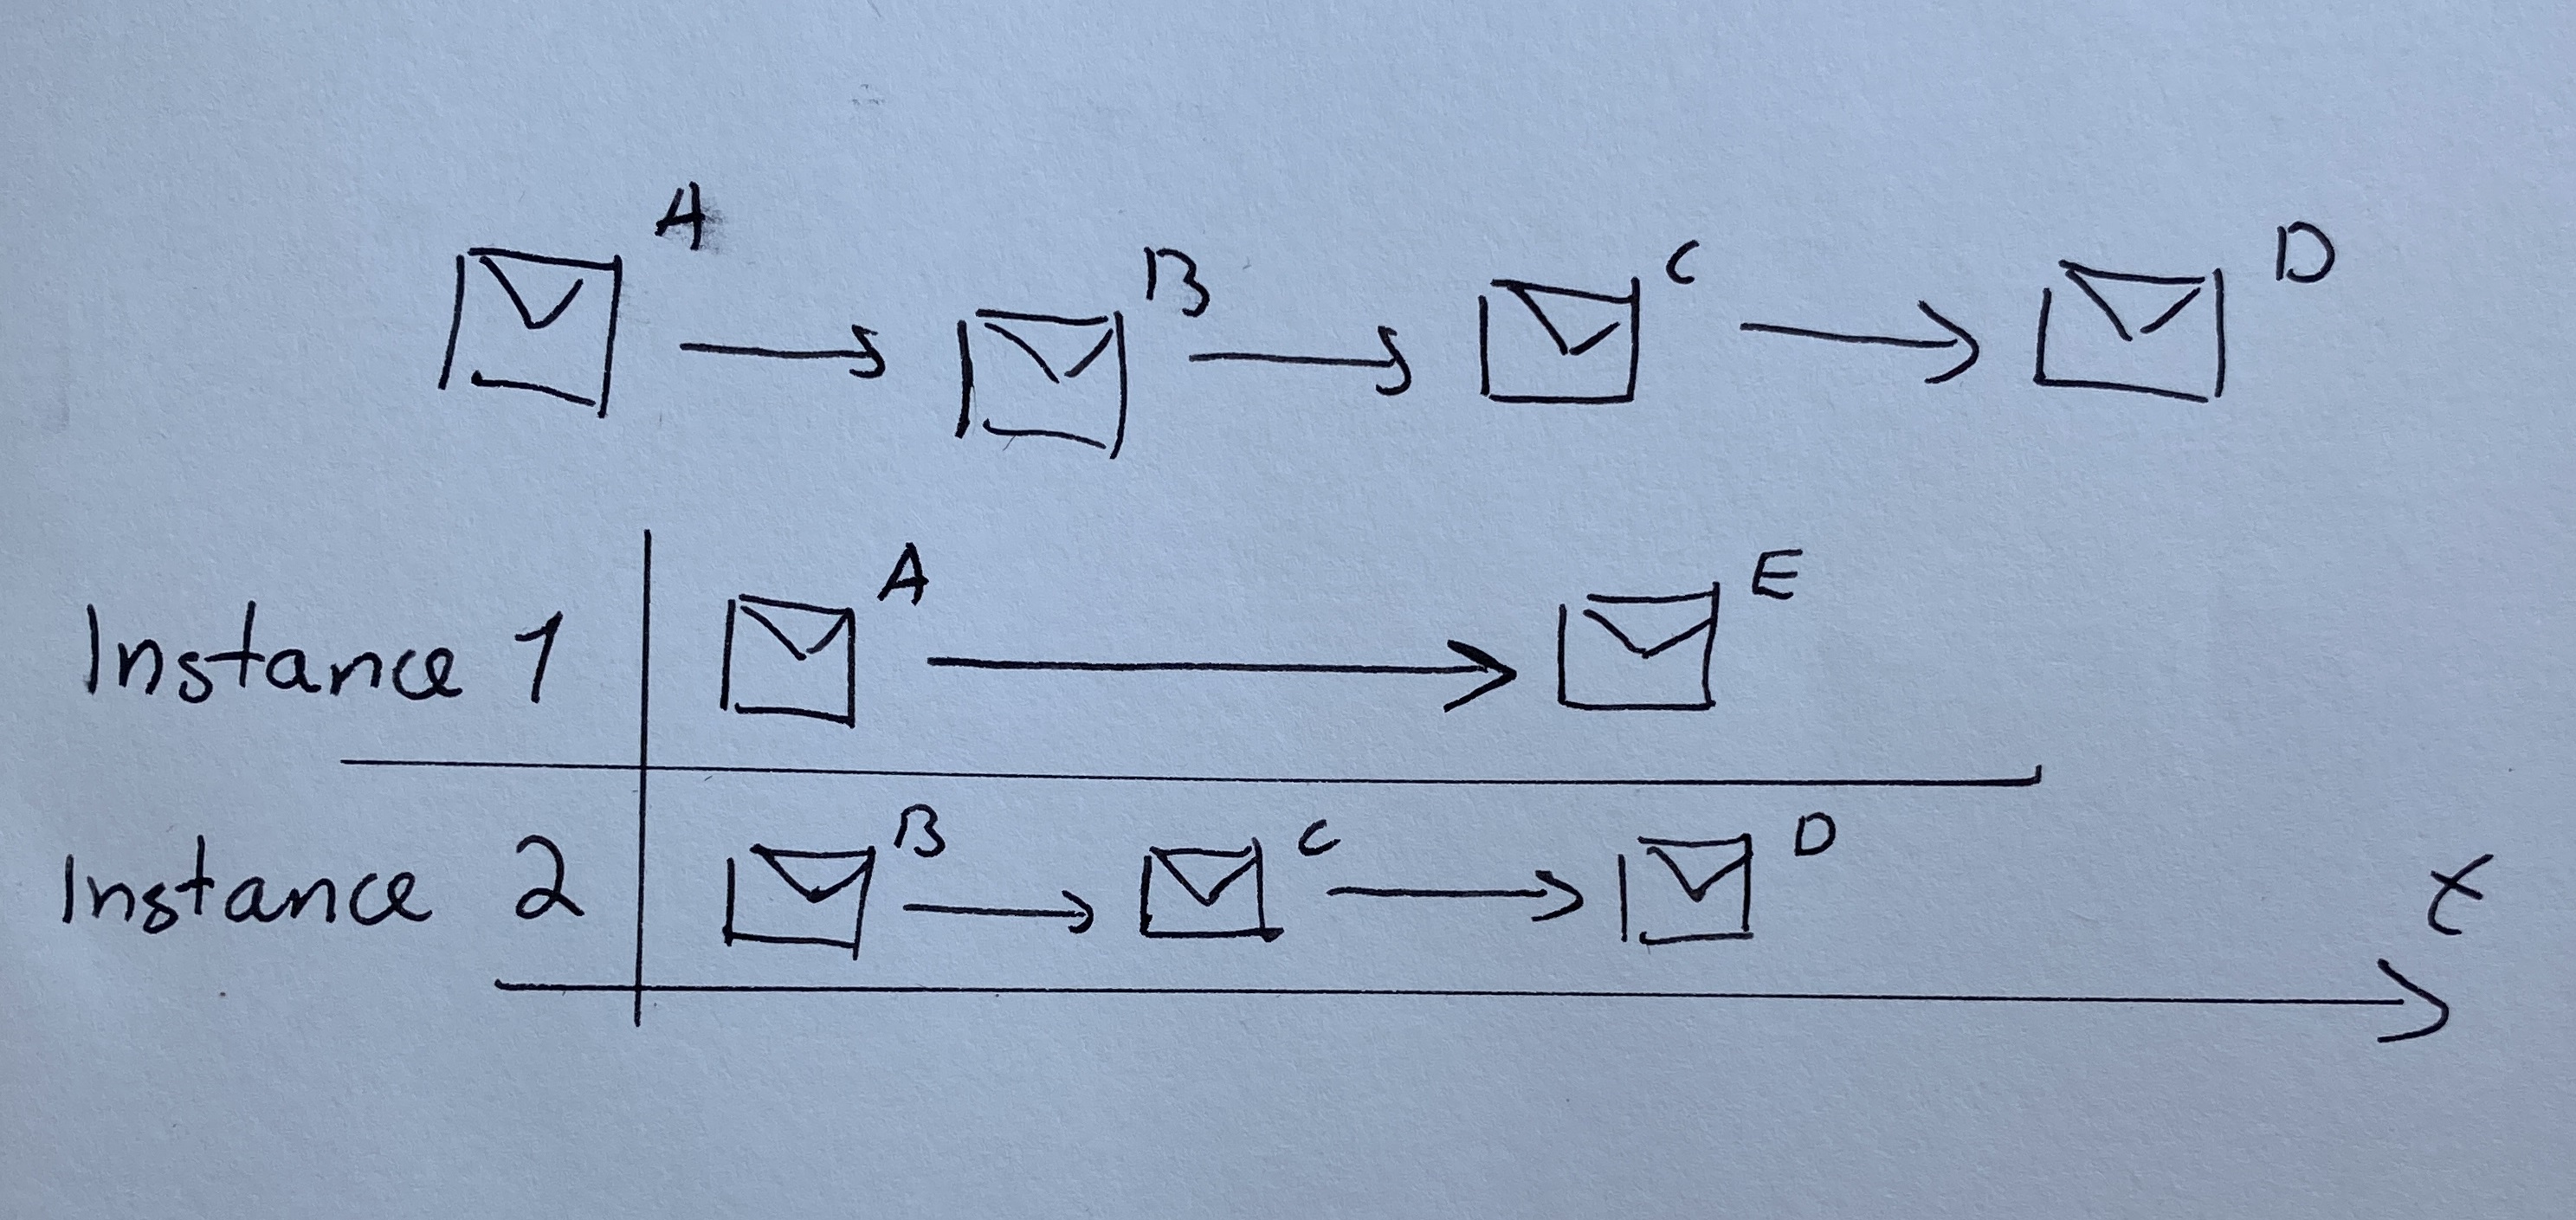 A B C D
Instance 1 A E
Instance 2 B C D
t